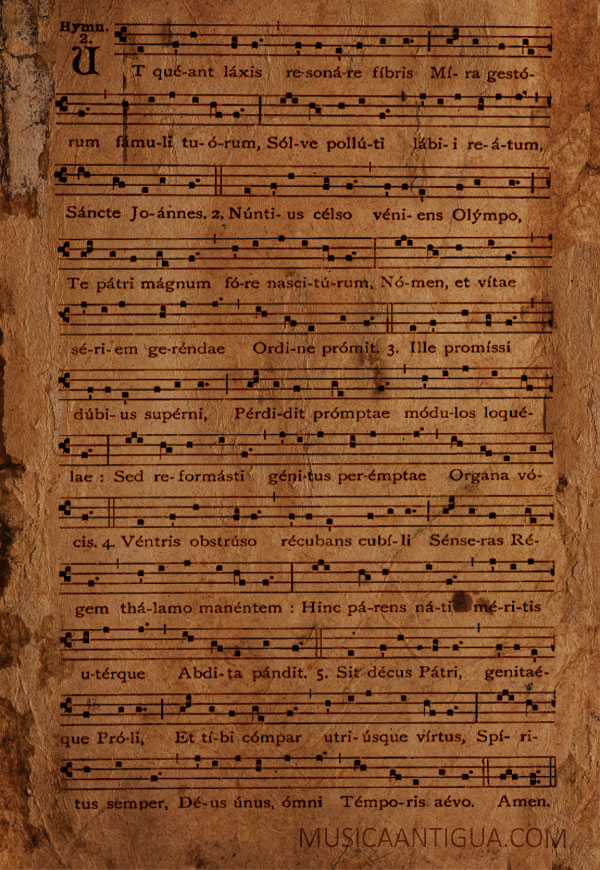 Hymn.
2.
UT qué-ant láxis re-soná-re fíbris Mí-ra gestó-
rum fámu-li tu-ó-rum, Sól-ve pollú-ti lábi-i re-á-tum,
Sáncte Jo-ánnes. 2. Núnti-us célso véni-ens Olýmpo,
Te pátri mágnum fó-re nasci-tú-rum, Nó-men, et vítae
sé-ri-em ge-réndae Ordi-ne prómit. 3. Ille promíssi
dúbi-us supérni, Pérdi-dit prómptae módu-los loqué-
lae : Sed re-formásti géni-tus per-émptae Organa vó-
cis. 4. Véntris obstrúso récubans cubí-li Sénse-ras Ré-
gem thá-lamo manéntem : Hinc pá-rens ná-ti mé-ri-tis
u-térque Abdi-ta pándit. 5. Sit décus Pátri, genitaé-
que Pró-li, Et tí-bi cómpar utri-úsque vírtus, Spí-ri-
tus semper, Dé-us únus, ómni Témpo-ris aévo. Amen.
MUSICAANTIGUA.COM